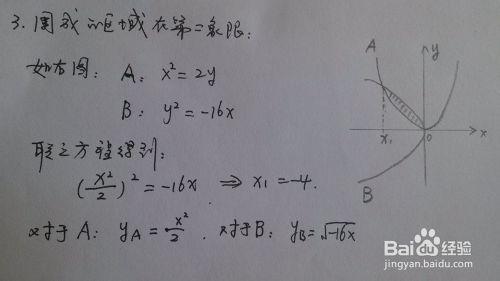 3. 围成的区域在第二象限:
如右图: A: x²=2y
B: y²=-16x
联立方程得到:
(x²/2)²=-16x ⇒ x₁=-4.
对于A: y_A=x²/2. 对于B: y_B=√-16x
A
y
x₁
0
x
B
Baidu经验
jingyan.baidu.com